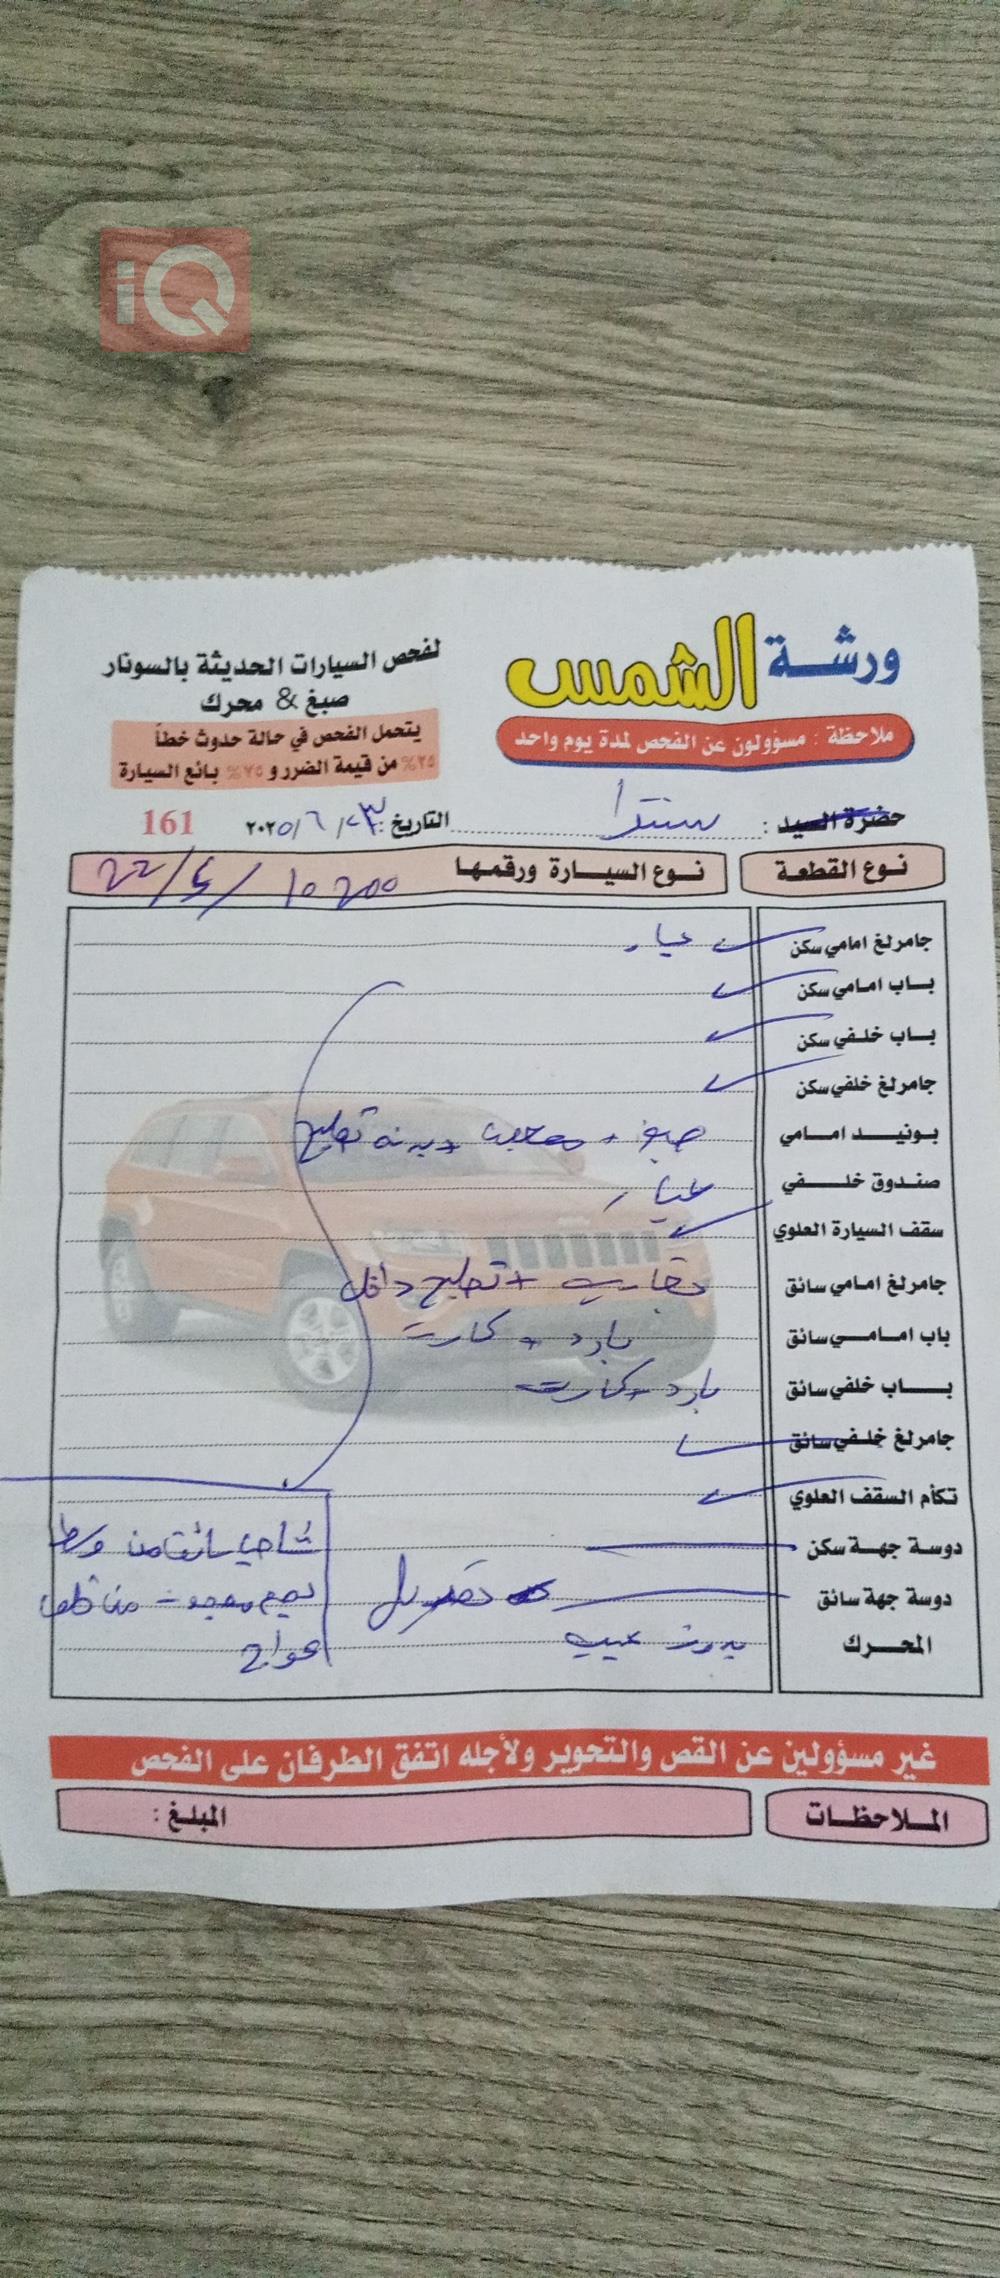 iQ
ورشة الشمس
لفحص السيارات الحديثة بالسونار
صبغ & محرك
ملاحظة : مسؤولون عن الفحص لمدة يوم واحد
يتحمل الفحص في حالة حدوث خطأ
٢٥% من قيمة الضرر و ٧٥% بائع السيارة
حضرة السيد : سنترا التاريخ : ٢٣ / ٦ / ٢٠٢٥ 161
نوع القطعة نوع السيارة ورقمها
جامرلغ امامي سكن عيار
باب امامي سكن
باب خلفي سكن
جامرلغ خلفي سكن
بونيد امامي صبغ + معجون تصليح
صندوق خلفي عيار
سقف السيارة العلوي
جامرلغ امامي سائق + تصليح داخل
باب امامي سائق بارد + كارت
باب خلفي سائق بارد + كارت
جامرلغ خلفي سائق
تكأم السقف العلوي
دوسة جهة سكن
دوسة جهة سائق
المحرك بدون عيب
غير مسؤولين عن القص والتحوير ولأجله اتفق الطرفان على الفحص
الملاحظات المبلغ :